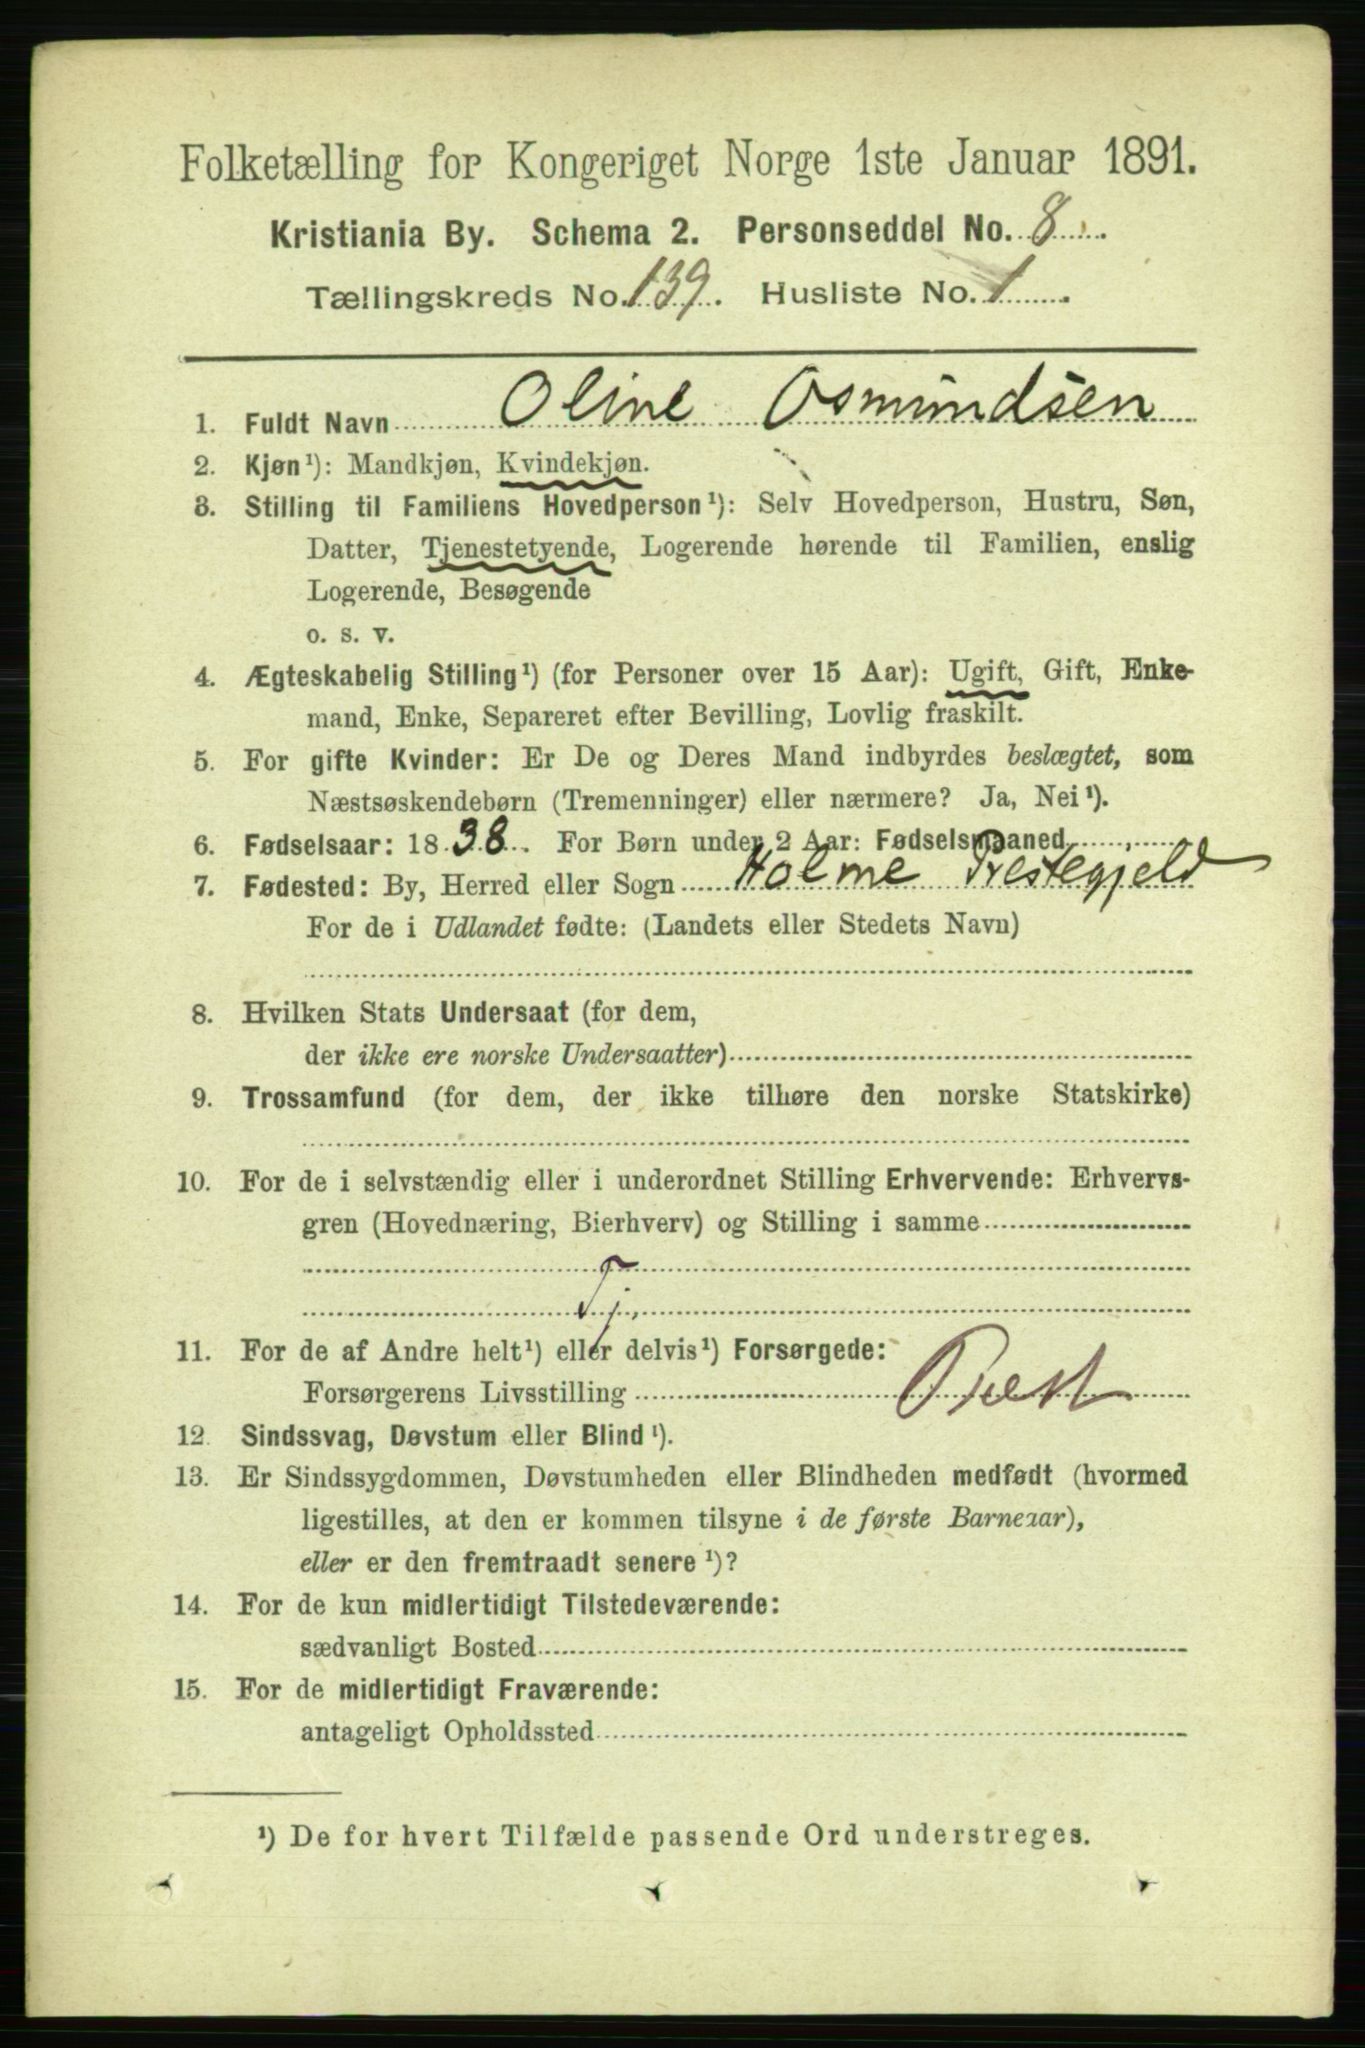 Folketælling for Kongeriget Norge 1ste Januar 1891.
Kristiania By. Schema 2. Personseddel No. 8
Tællingskreds No. 139. Husliste No. 1
1. Fuldt Navn Oline Osmundsen
2. Kjøn¹): Mandkjøn, Kvindekjøn.
3. Stilling til Familiens Hovedperson¹): Selv Hovedperson, Hustru, Søn,
Datter, Tjenestetyende, Logerende hørende til Familien, enslig
Logerende, Besøgende
o. s. v.
4. Ægteskabelig Stilling¹) (for Personer over 15 Aar): Ugift, Gift, Enke-
mand, Enke, Separeret efter Bevilling, Lovlig fraskilt.
5. For gifte Kvinder: Er De og Deres Mand indbyrdes beslægtet, som
Næstsøskendebørn (Tremenninger) eller nærmere? Ja, Nei¹).
6. Fødselsaar: 1838. For Børn under 2 Aar: Fødselsmaaned
7. Fødested: By, Herred eller Sogn Holme Prestegjeld
For de i Udlandet fødte: (Landets eller Stedets Navn)
8. Hvilken Stats Undersaat (for dem,
der ikke ere norske Undersaatter)
9. Trossamfund (for dem, der ikke tilhøre den norske Statskirke)
10. For de i selvstændig eller i underordnet Stilling Erhvervende: Erhvervs-
gren (Hovednæring, Bierhverv) og Stilling i samme
Tj.
11. For de af Andre helt¹) eller delvis¹) Forsørgede:
Forsørgerens Livsstilling Præst
12. Sindssvag, Døvstum eller Blind¹).
13. Er Sindssygdommen, Døvstumheden eller Blindheden medfødt (hvormed
ligestilles, at den er kommen tilsyne i de første Barneaar),
eller er den fremtraadt senere¹)?
14. For de kun midlertidigt Tilstedeværende:
sædvanligt Bosted
15. For de midlertidigt Fraværende:
antageligt Opholdssted
¹) De for hvert Tilfælde passende Ord understreges.